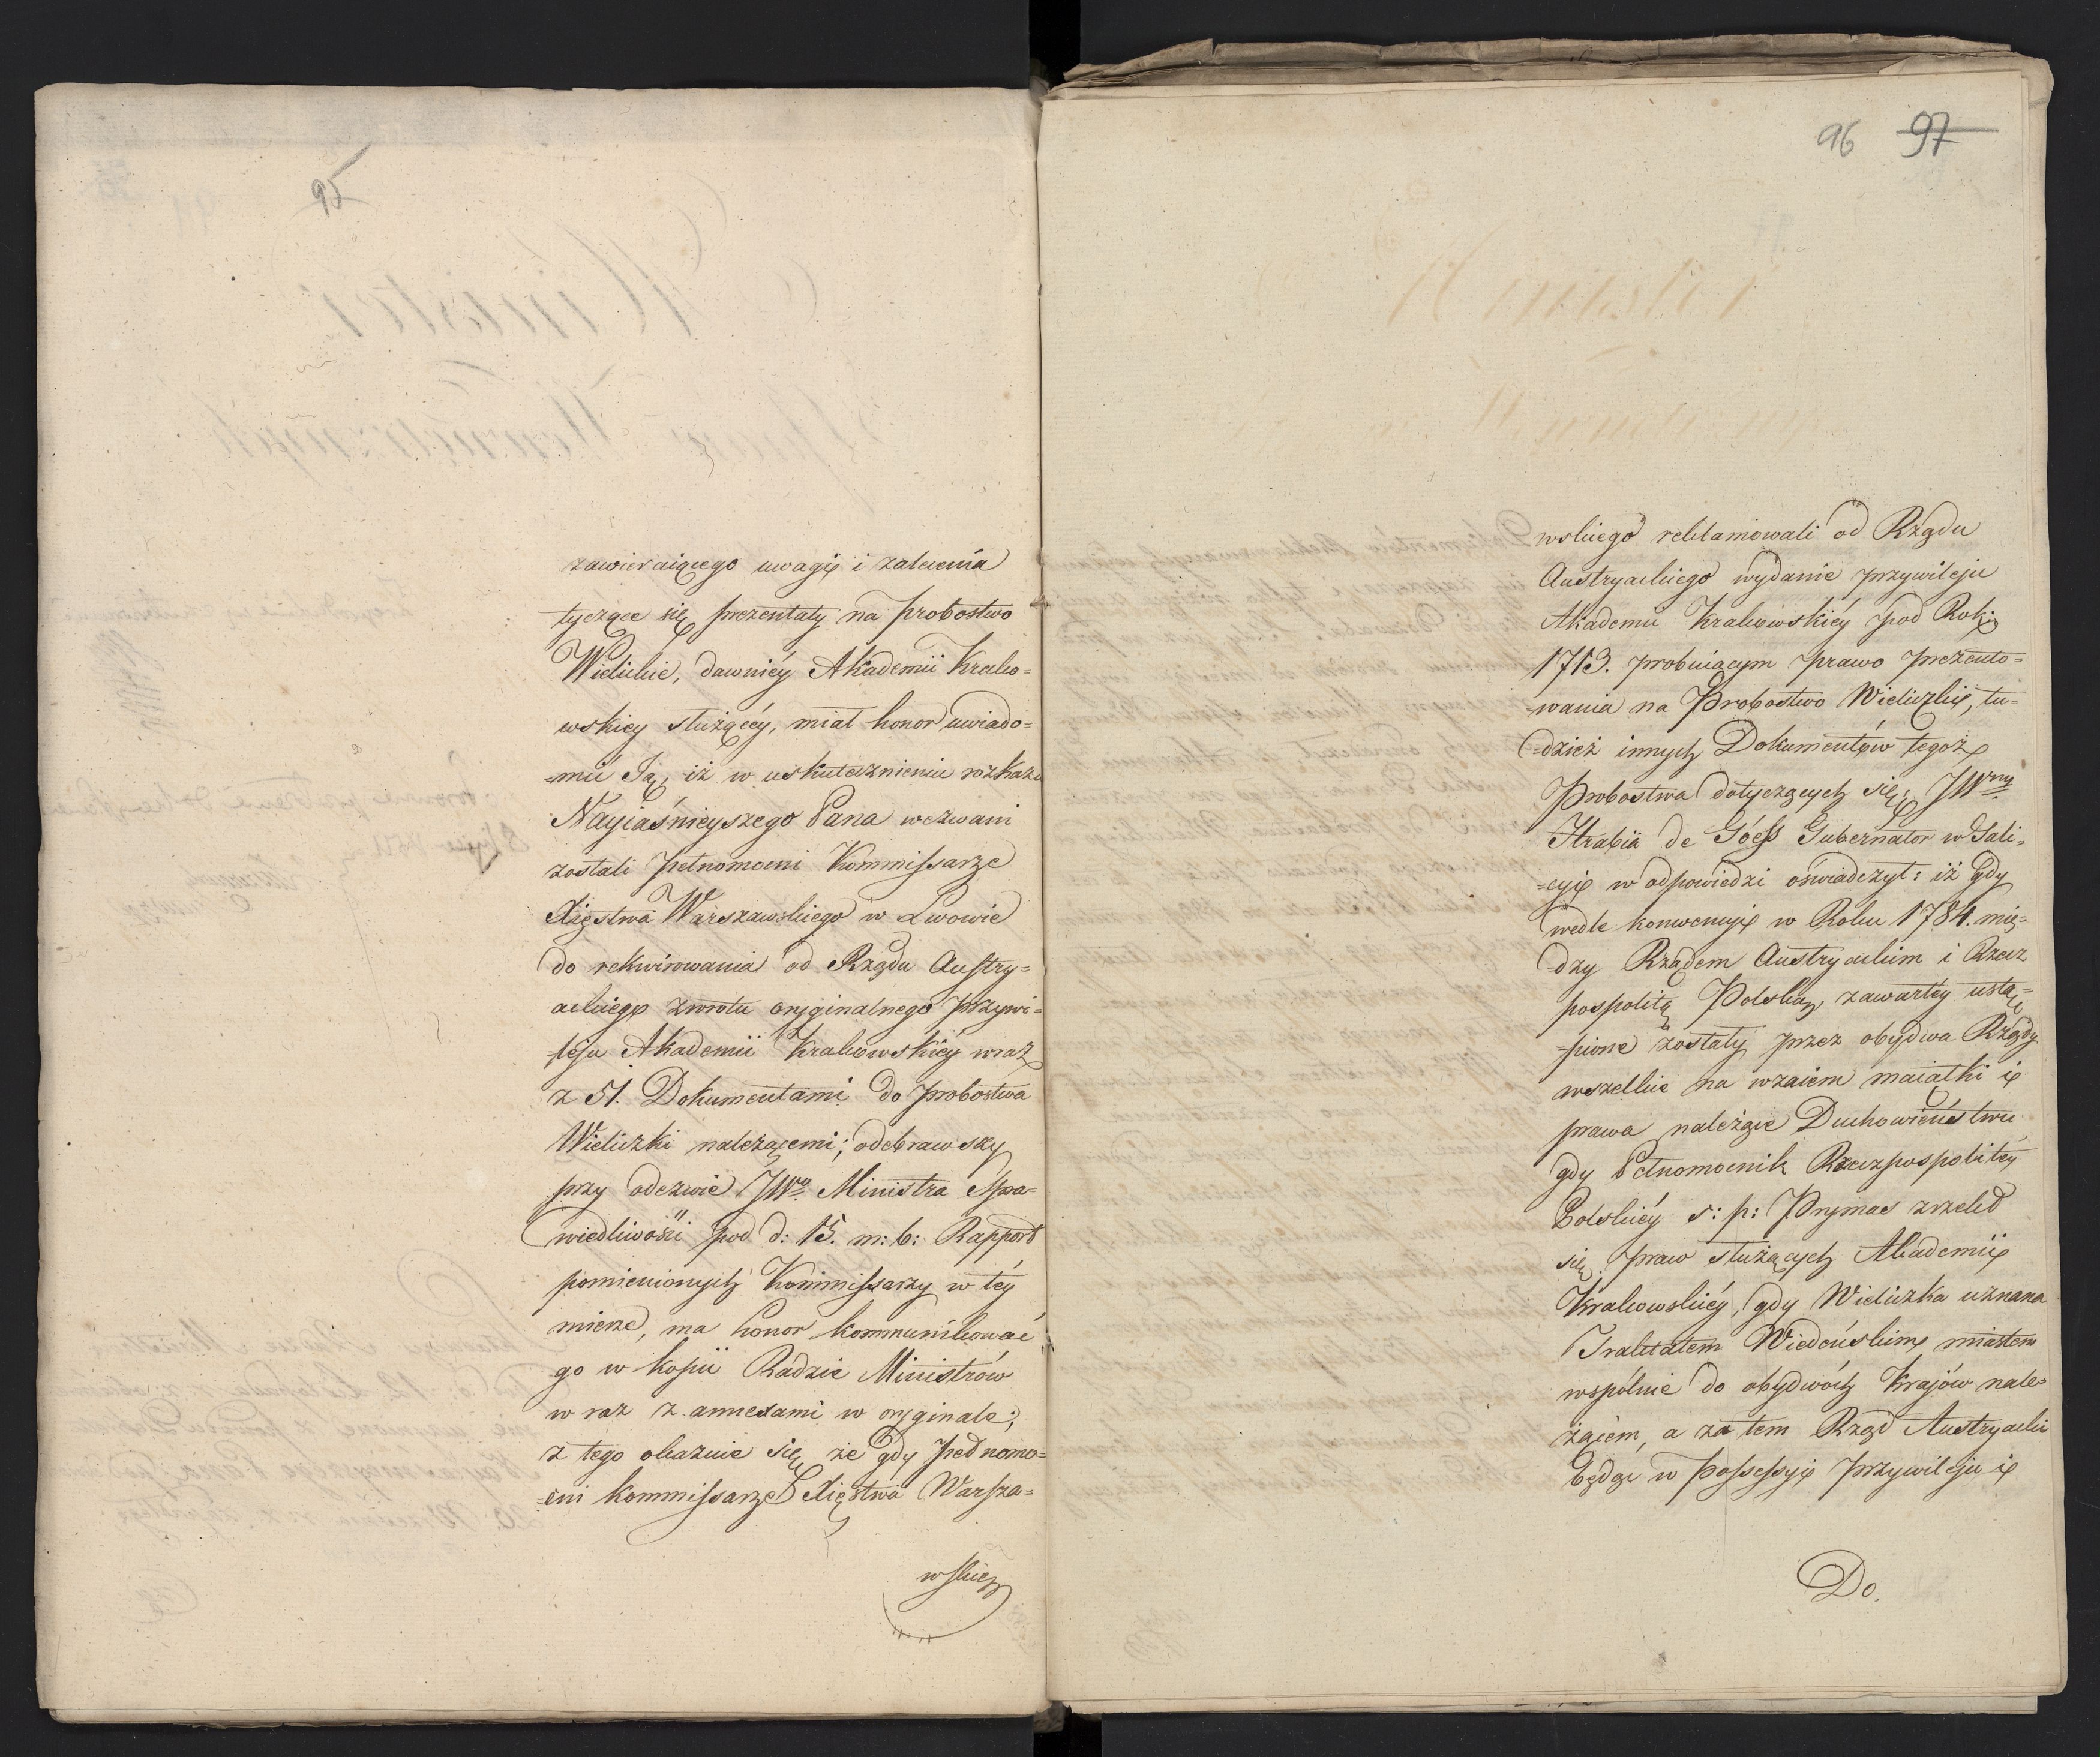 95
zawieraiącego uwagi i zalecenia
tyczące się prezentaty na probostwo
Wielickie, dawniéy Akademii Krako=
wskiey służącéy, miał honor uwiado=
=mić Ją, iż w uskutecznieniu rozkazu
Nayiaśnieyszego Pana wezwani
zostali pełnomocni Kommissarze
Xięstwa Warszawskiego w Lwowie
do rekwirowania od Rządu Austry=
ackiego zwrotu oryginalnego przywi=
=leju Akademii Krakowskiéy wraz
z 51. Dokumentami do probostwa
Wieliczki należącemi; odebrawszy
przy odezwie JWo Ministra Spra=
wiedliwości pod d: 15. m: b: Rapport
pomienionych Kommissarzy w téy
mierze, ma honor kommunikować
go w kopii Radzie Ministrów
wraz z annexami w oryginale;
z tego okazuie się, że gdy pełnomo=
=cni Kommissarze Xięstwa Warsza=
wskieg
96 97
wskiego reklamowali od Rządu
Austryackiego wydanie przywileju
Akademii Krakowskiéy pod Rok:
1713. probuiącym prawo prezento=
=wania na Probostwo Wieliczki, tu=
=dzież innych Dokumentów tegoż
Probostwa dotyczących się; JWny
Hrabia de Góess Gubernator w Gali=
=cyi w odpowiedzi oświadczył: iż gdy
wedle konwencyi w Roku 1784. mię=
dzy Rządem Austryackim i Rzecz
pospolitą Polską, zawartéy ustą=
=pione zostały przez obydwa Rządy
wszelkie na wzaiem maiątki i
prawa należące Duchowieństwu
gdy Pełnomocnik Rzeczpospolitéy
Polskiéy ś: p: Prymas zrzekł
się praw służących Akademii
Krakowskiéy, gdy Wieliczka uznana
Traktatem Wiedeńskim miastem
wspólnie do obydwóch Krajów nale=
żącem, a za tem Rząd Austryacki
będąc w possessyi przywileju i
Do.